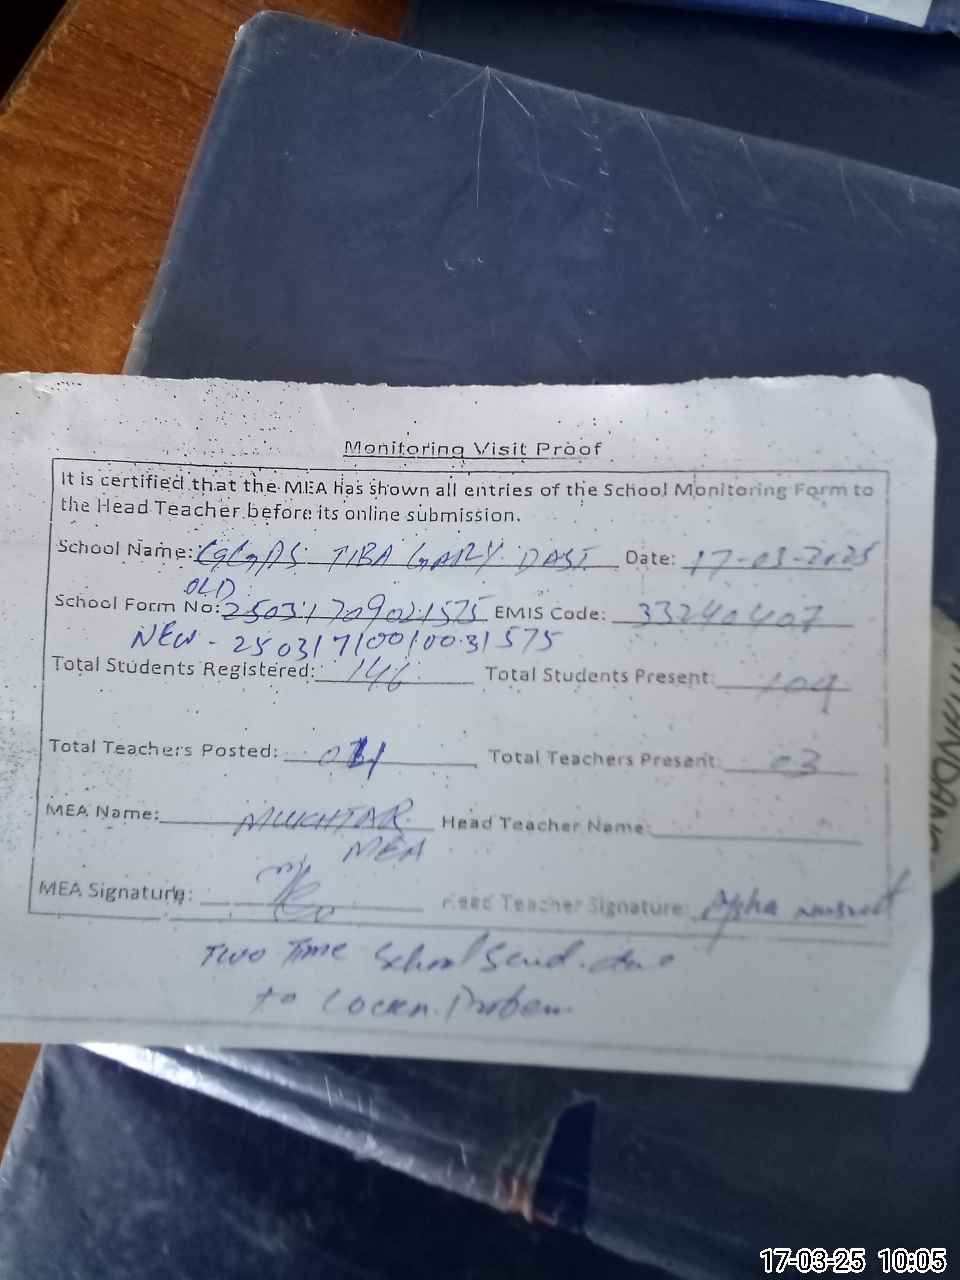 Monitoring Visit Proof
It is certified that the MEA has shown all entries of the School Monitoring Form to
the Head Teacher before its online submission.
School Name: TIBA Date: 17-03-2025
OLD
School Form No: 25031709021575 EMIS Code: 33240407
NEW - 25031710010031575
Total Students Registered: 146 Total Students Present: 109
Total Teachers Posted: Total Teachers Present: 03
MEA Name: MUKHTAR Head Teacher Name:
MEA
MEA Signature: Head Teacher Signature:
Two Time School Send due
to Proben
17-03-25 10:05